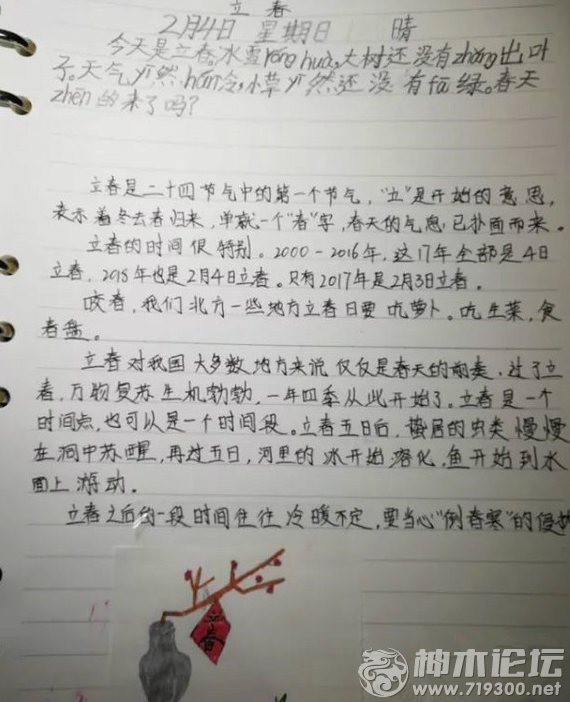 立春
2月4日 星期日 晴
今天是立春。冰雪róng huà,大树还没有zhǎng出叶
子。天气yī然hán冷,小草yī然还没有fā绿。春天
zhēn的来了吗?
立春是二十四节气中的第一个节气,"立"是开始的意思,
表示着冬去春归来,单就一个"春"字,春天的气息已扑面而来。
立春的时间很特别。2000-2016年,这17年全部是4日
立春,2018年也是2月4日立春。只有2017年是2月3日立春。
咬春,我们北方一些地方立春日要吃萝卜。吃生菜,食
春盘。
立春对我国大多数地方来说仅仅是春天的前奏,过了立
春,万物复苏生机勃勃,一年四季从此开始了。立春是一个
时间点,也可以是一个时间段。立春五日后,蛰居的虫类慢慢
在洞中苏醒,再过五日,河里的冰开始溶化,鱼开始到水
面上游动。
立春之后的一段时间往往冷暖不定,要当心"倒春寒"的侵
立春
神木论坛
www.719300.net